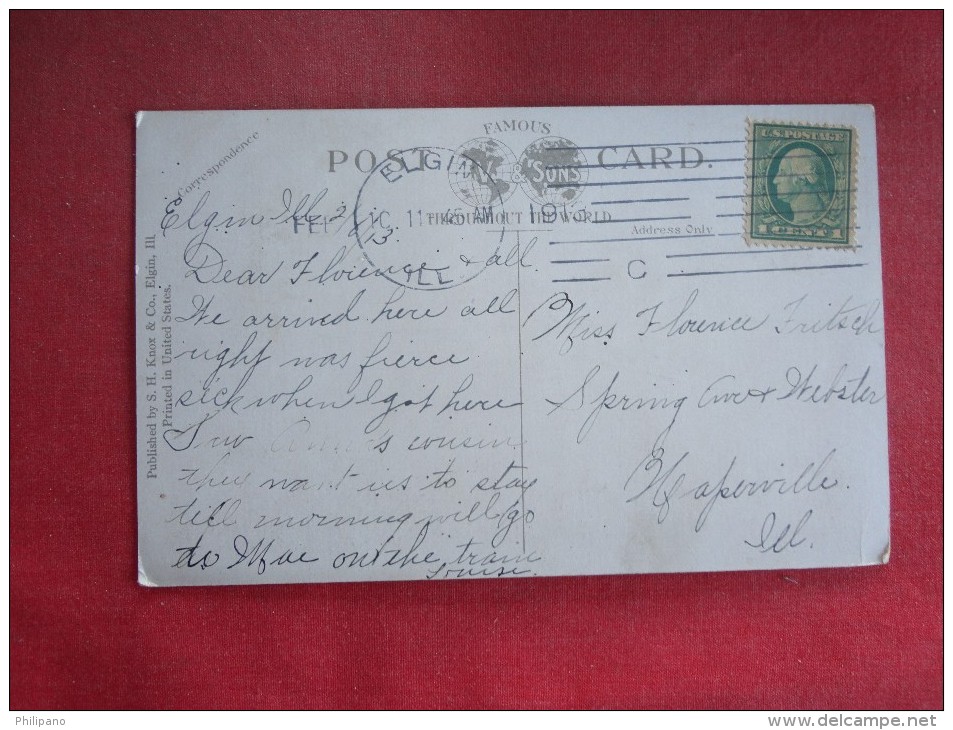 Correspondence
POST CARD.
FAMOUS
& SONS
THROUGHOUT THE WORLD
Address Only
U.S. POSTAGE
ELGIN
FEB 10 11 AM 1913
ILL
C
Published by S. H. Knox & Co., Elgin, Ill
Printed in United States.
Elgin Ill 2/
13.
Dear Florence & all.
We arrived here all
right was fierce
sick when I got here
Saw cousin
they want us to stay
till morning will go
to Mae on the train
Louise.
Miss Florence Fritsch
Spring Ave & Webster
Naperville.
Ill.
Philipano
www.delcampe.net